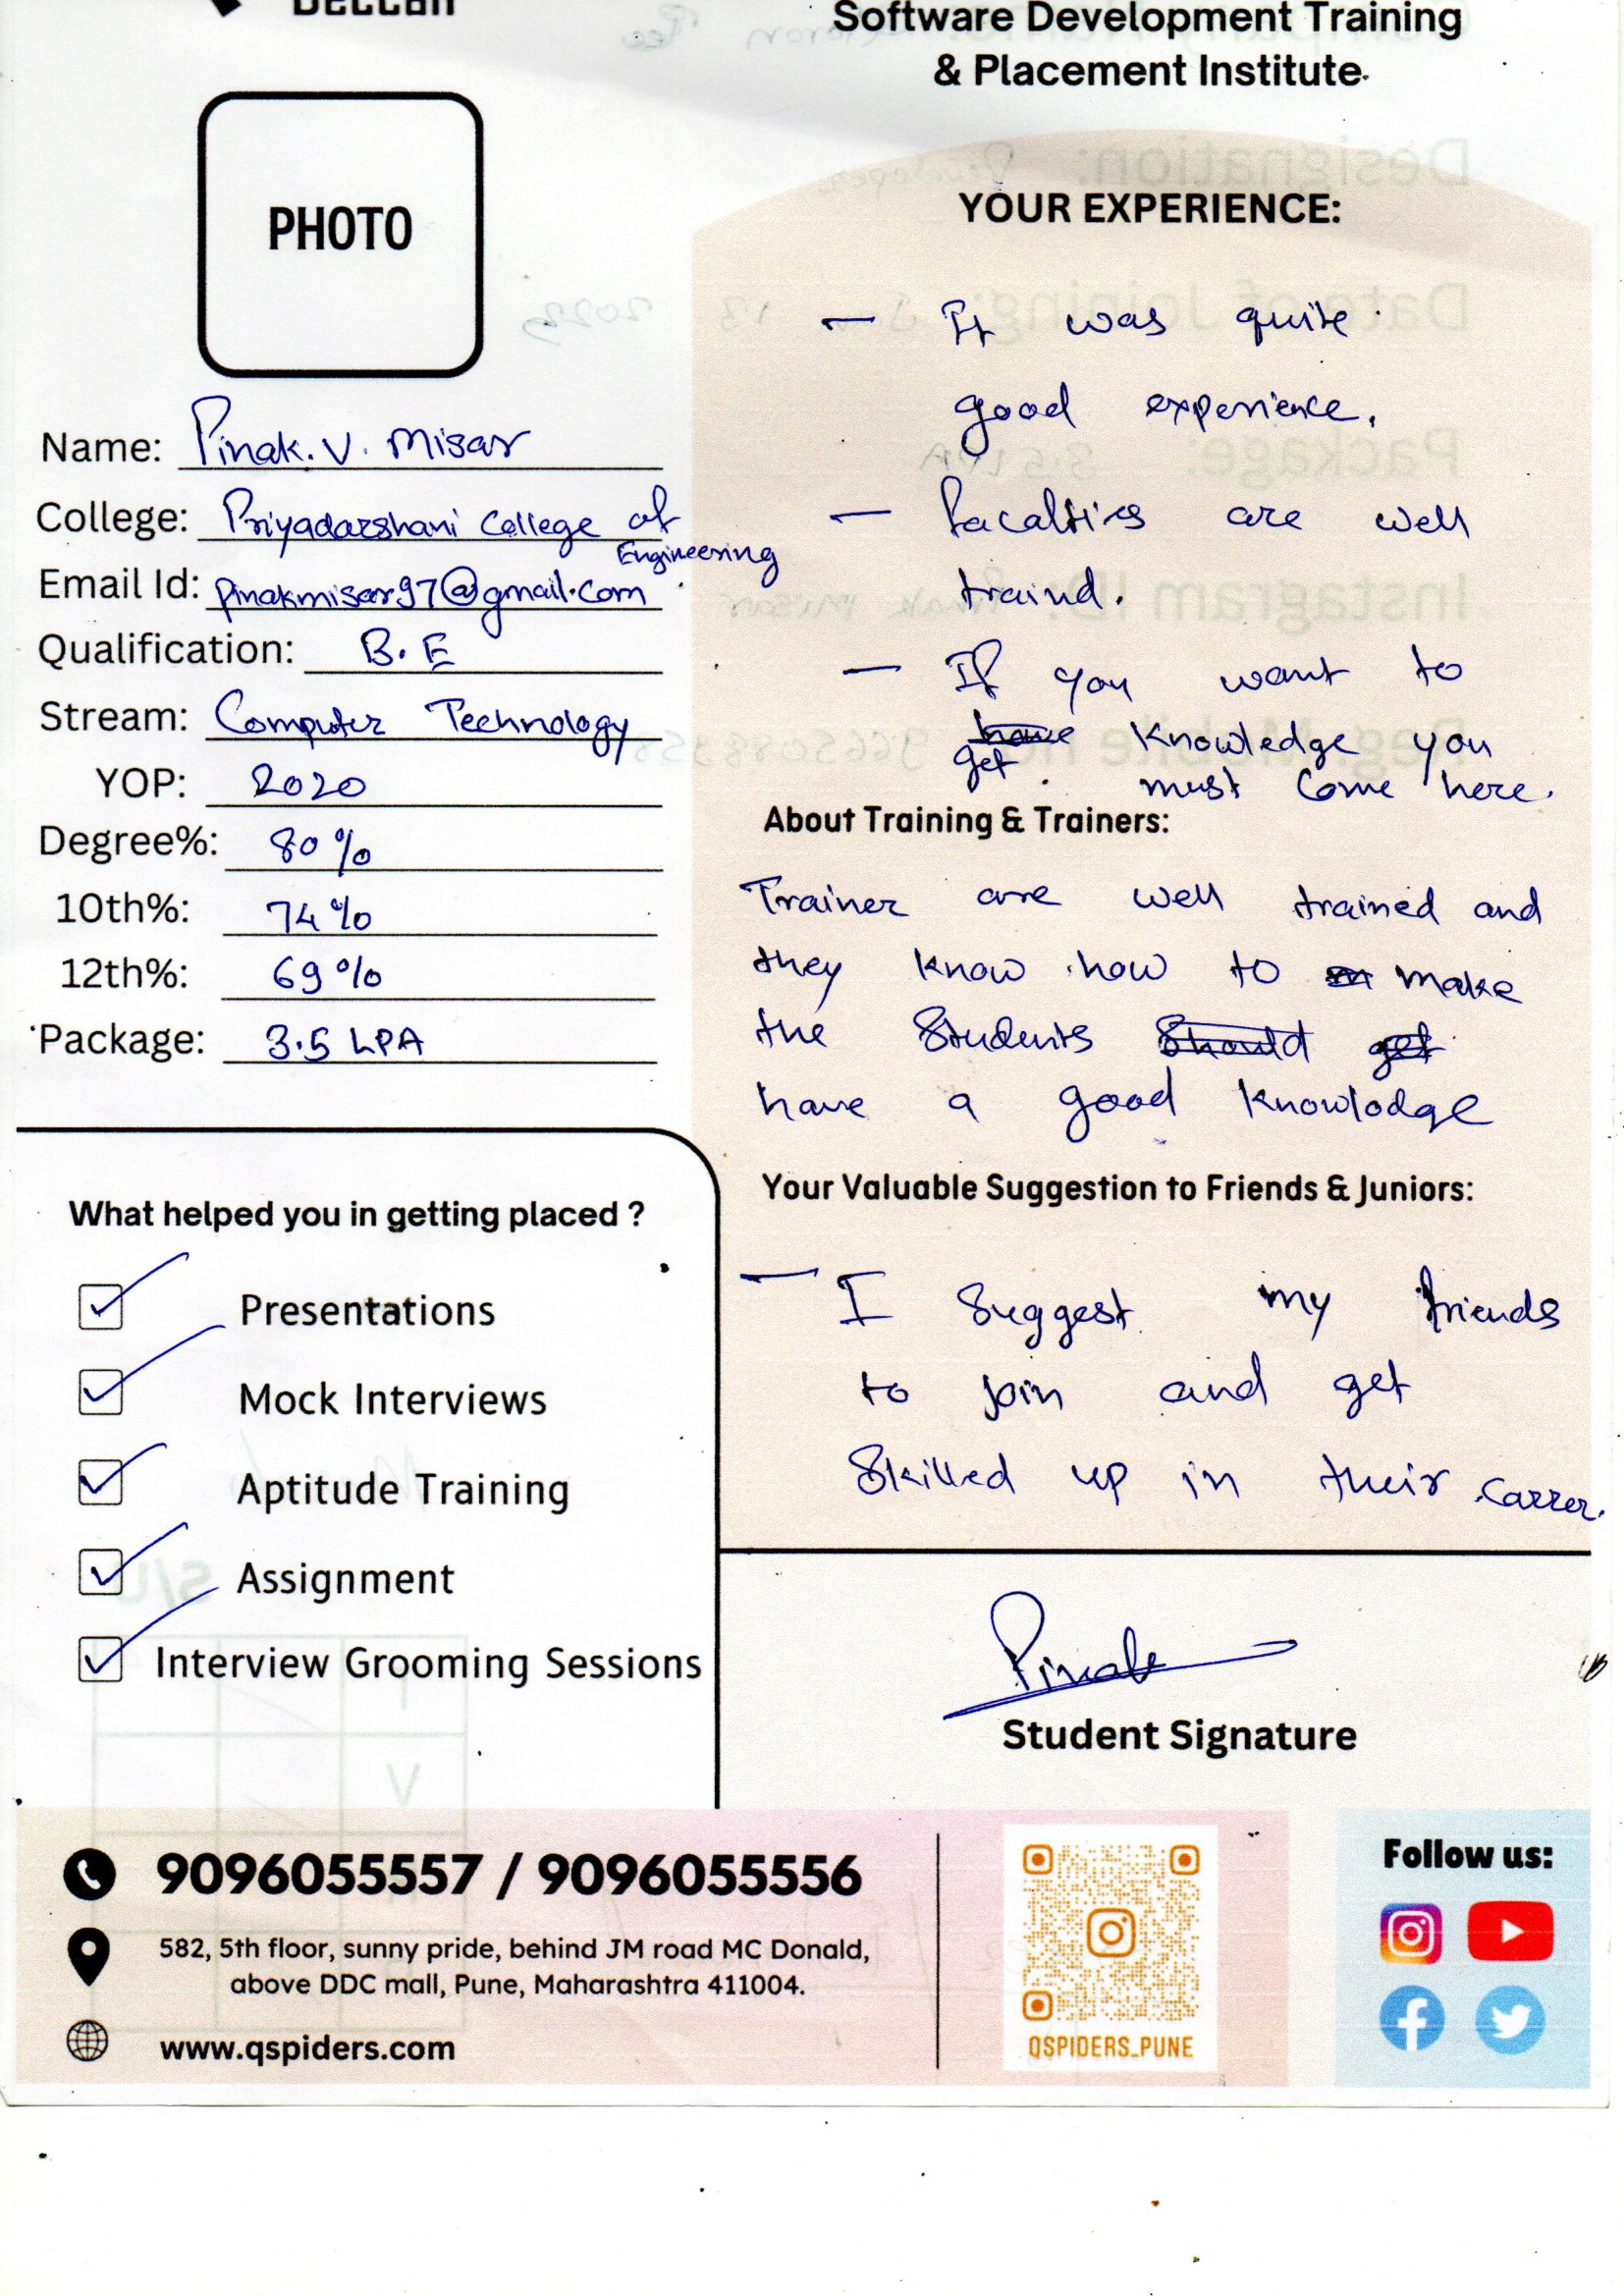 Deccan
Software Development Training
& Placement Institute
PHOTO
Name: Pinak. V. Misar
College: Priyadarshani College of
Engineering
Email Id: pinakmisar97@gmail.com
Qualification: B.E
Stream: Computer Technology
YOP: 2020
Degree%: 80%
10th%: 74%
12th%: 69%
Package: 3.5 LPA
What helped you in getting placed ?
Presentations
Mock Interviews
Aptitude Training
Assignment
Interview Grooming Sessions
YOUR EXPERIENCE:
- It was quite
good experience.
- facalties are well
traind.
- If you want to
have knowledge you
get must come here.
About Training & Trainers:
Trainer are well trained and
they know how to m make
the Students Should get
have a good knowlodge
Your Valuable Suggestion to Friends & Juniors:
- I Suggest my friends
to join and get
Skilled up in their carrer.
Pinak
Student Signature
9096055557 / 9096055556
582, 5th floor, sunny pride, behind JM road MC Donald,
above DDC mall, Pune, Maharashtra 411004.
www.qspiders.com
QSPIDERS_PUNE
Follow us: